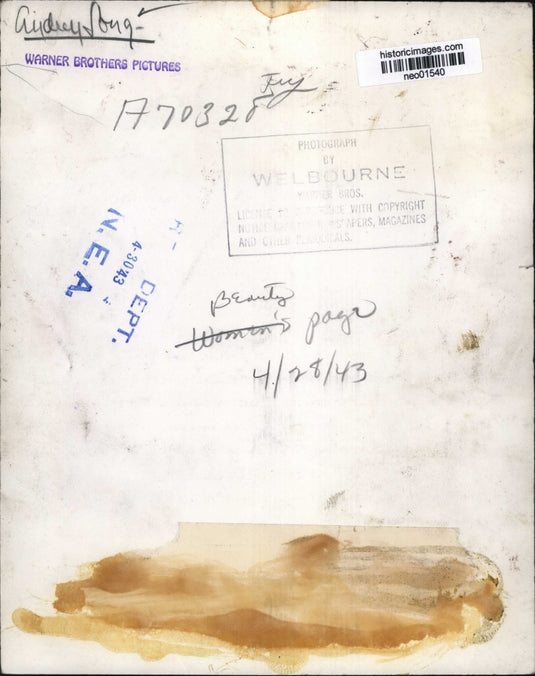 Audrey Long
WARNER BROTHERS PICTURES
historicimages.com
neo01540
A70328
PHOTOGRAPH
BY
WELBOURNE
WARNER BROS.
WITH COPYRIGHT
MAGAZINES
AND OTHER PERIODICALS.
DEPT.
4-3043
N.E.A.
Beauty
Women's page
4/28/43